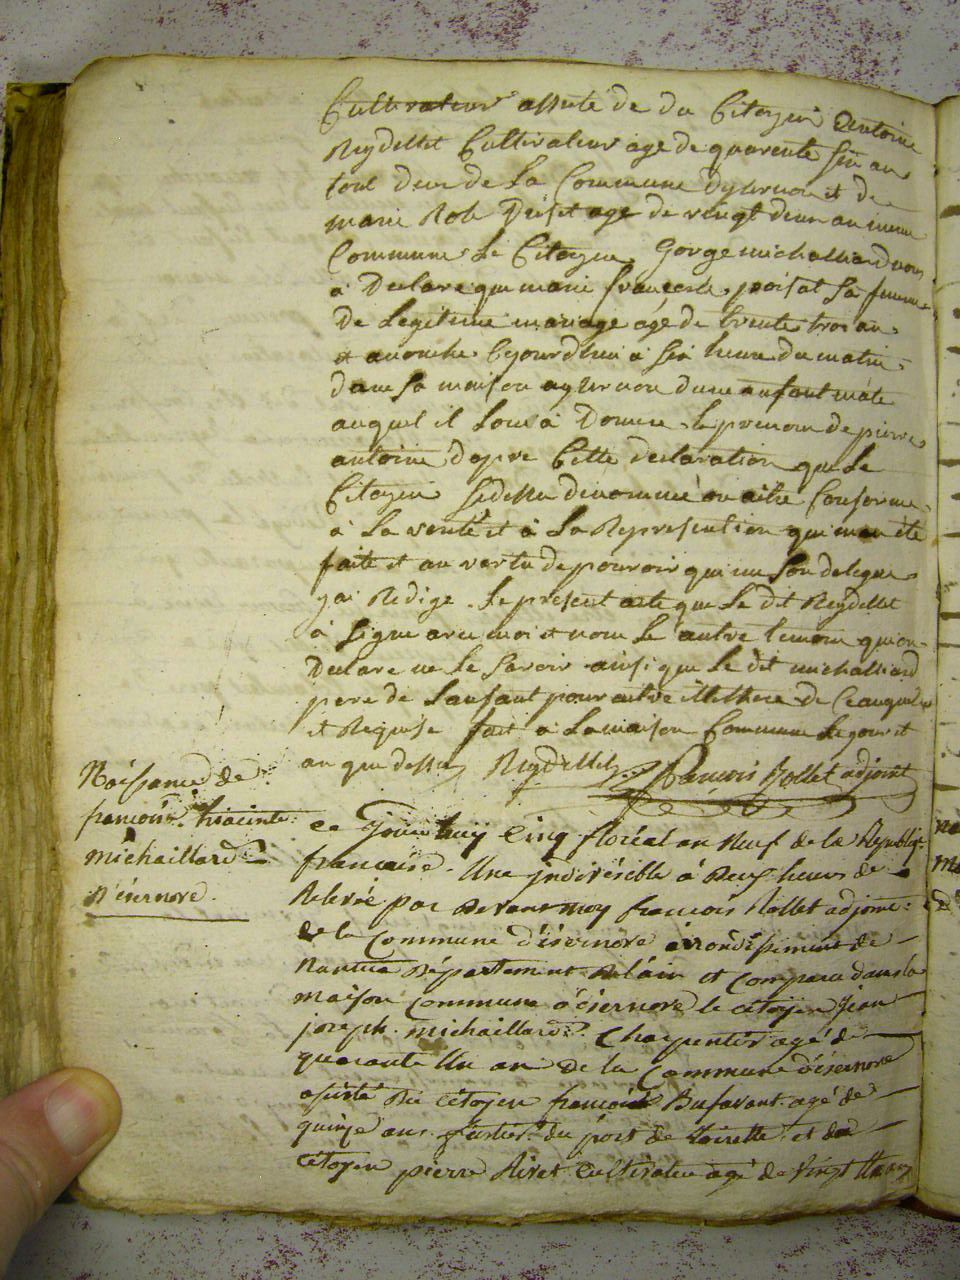 Cultivateur assiste de du Citoyen Antoine
Reydellet Cultivateur age de quarente six an
tout deux de La Commune dyzernon et de
marie Rose age de vingt deux an meme
Commune Le Citoyen Gorge michalliard nous
à Declare que marie françoise poisat sa femme
De Legitime mariage agé de trente trois an
et acouche ajourdhui à six heure du matin
dans sa maison a yzernon dun anfant mâle
auquel il à Donner le prenom de pierre
antoine dapre Cette declaration que Le
Citoyen denommé Conforme
à La verité et à La Representation qui man eté
faite et an vertu de pouvoir qui me son delegue
jai Redige Le present acte que Le dit Reydellet
à Signe avec moi et non Le autre temoin qui on
Declare ne Le Savoir ainsi que Le dit michalliard
pere de Lanfant pour autre de Ceanquel
et Requise fait à La maison Commune Le jour et
an que dessu Reydellet françois Rollet adjoint
Naissance de
françois hiacinte
michaillard
D'isernore
Ce Jourdhuy Cinq floréal an Neuf de la Republiq
françaisse Une jndivésible à Deux heures de
Relevée par Devant moy francois Rollet adjoint
de la Commune d'isernore arondissiment de
Nantua Département De l'ain et comparu dans la
maison Commune d'isernore le citoyen Jean
joseph michaillard Charpentier agé de
quarante Un an de la Commune d'isernore
asisté Du citoyen francois Bufavant agé de
quinze ans du port de et du
citoyen pierre cultivateu agé de Vingt